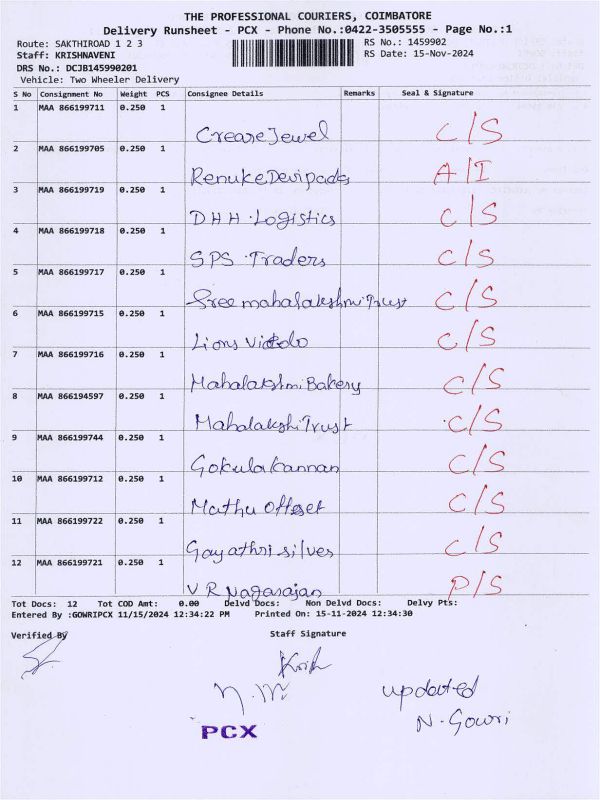 THE PROFESSIONAL COURIERS, COIMBATORE
Delivery Runsheet - PCX - Phone No.:0422-3505555 - Page No.:1
Route: SAKTHIROAD 1 2 3 RS No.: 1459902
Staff: KRISHNAVENI RS Date: 15-Nov-2024
DRS No.: DCJB145990201
Vehicle: Two Wheeler Delivery
S No Consignment No Weight PCS Consignee Details Remarks Seal & Signature
1 MAA 866199711 0.250 1
Creare Jewel C/S
2 MAA 866199705 0.250 1
Renuke Devipada A/I
3 MAA 866199719 0.250 1
DHH.Logistics C/S
4 MAA 866199718 0.250 1
SPS.Traders C/S
5 MAA 866199717 0.250 1
Sree mahalakshmi Trust C/S
6 MAA 866199715 0.250 1
Lions C/S
7 MAA 866199716 0.250 1
Mahalakshmi Bakery C/S
8 MAA 866194597 0.250 1
Mahalakshi Trust C/S
9 MAA 866199744 0.250 1
Gokula kannan C/S
10 MAA 866199712 0.250 1
Mathu Offset C/S
11 MAA 866199722 0.250 1
Gayathri silves C/S
12 MAA 866199721 0.250 1
V R Nagarajan P/S
Tot Docs: 12 Tot COD Amt: 0.00 Delvd Docs: Non Delvd Docs: Delvy Pts:
Entered By :GOWRIPCX 11/15/2024 12:34:22 PM Printed On: 15-11-2024 12:34:30
Verified By Staff Signature
Krish
updated
N. Gowri
PCX